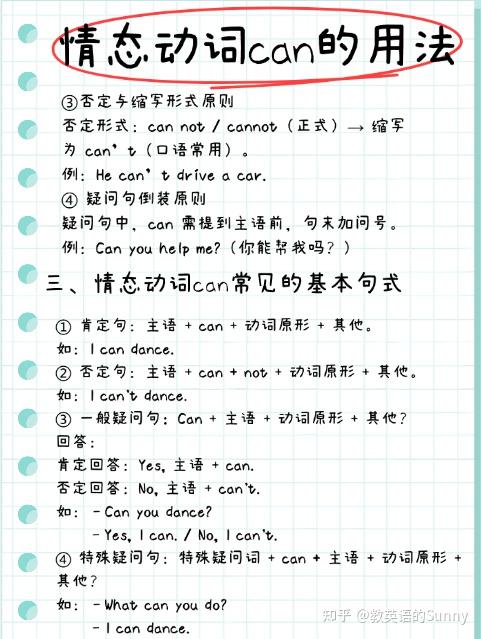 情态动词can的用法
③否定与缩写形式原则
否定形式：can not / cannot（正式）→ 缩写
为 can't（口语常用）。
例：He can't drive a car.
④ 疑问句倒装原则
疑问句中，can 需提到主语前，句末加问号。
例：Can you help me?（你能帮我吗？）
三、情态动词can常见的基本句式
① 肯定句：主语 + can + 动词原形 + 其他。
如：I can dance.
② 否定句：主语 + can + not + 动词原形 + 其他。
如：I can't dance.
③ 一般疑问句：Can + 主语 + 动词原形 + 其他？
回答：
肯定回答：Yes, 主语 + can.
否定回答：No, 主语 + can't.
如：- Can you dance?
- Yes, I can. / No, I can't.
④ 特殊疑问句：特殊疑问词 + can + 主语 + 动词原形 +
其他？
如：- What can you do?
- I can dance.
知乎 @教英语的Sunny